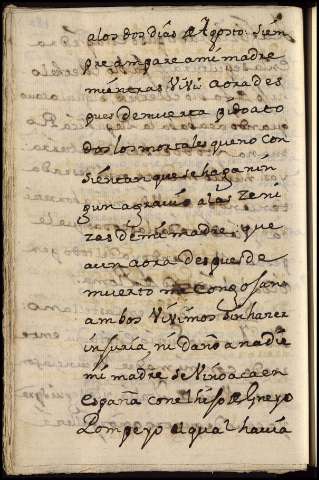 alos dos días de Agosto. Siem
pre ampare a mi madre
mientras Viví aora des
pues de muerta pido a to
dos los mortales que no con
sientan que se haga nin
gun agravio a las zeni
zas de mi madre, que
aun aora despues de
muerto me congojara
ambos Vivimos sin hazer
injuria ni daño a nadie
mi madre se Vino aca en
España con el hijo de Gneyo
Pompeyo el qual havia